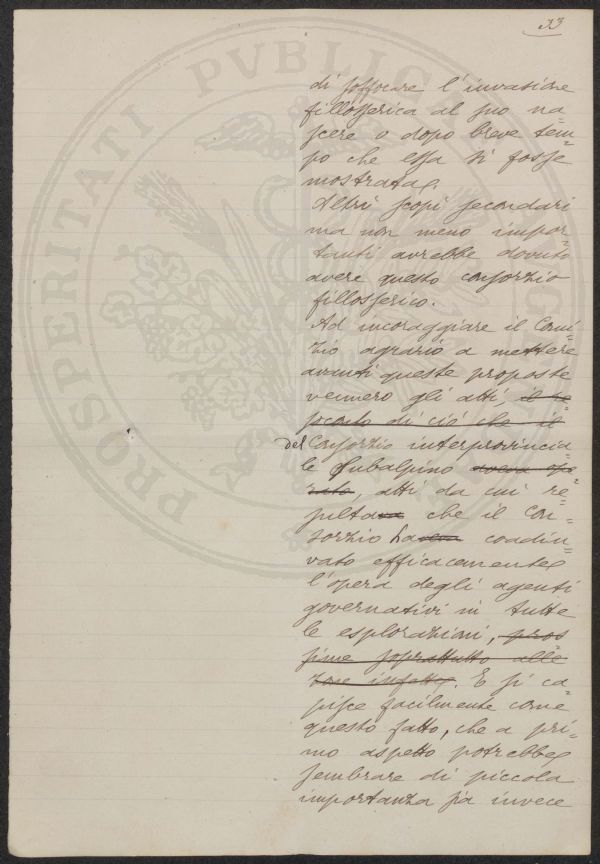 33
di soffocare l'invasione
fillosserica al suo na=
scere o dopo breve tem=
po che essa si fosse
mostrata.
Altri scopi secondari
ma non meno impor=
tanti avrebbe dovuto
avere questo consorzio
fillosserico.
Ad incoraggiare il Comi=
zio agrario a mettere
avanti queste proposte
vennero gli atti il re=
soconto di ciò che il
del Consorzio interprovincia=
le Subalpino aveva ope=
rato, atti da cui re=
sultava che il Con=
sorzio haveva coadiu=
vato efficacemente
l'opera degli agenti
governativi in tutte
le esplorazioni, pros
sime soprattutto alle
zone infette. E si ca=
pisce facilmente come
questo fatto, che a pri=
mo aspetto potrebbe
sembrare di piccola
importanza sia invece
PROSPERITATI PVBLICAE